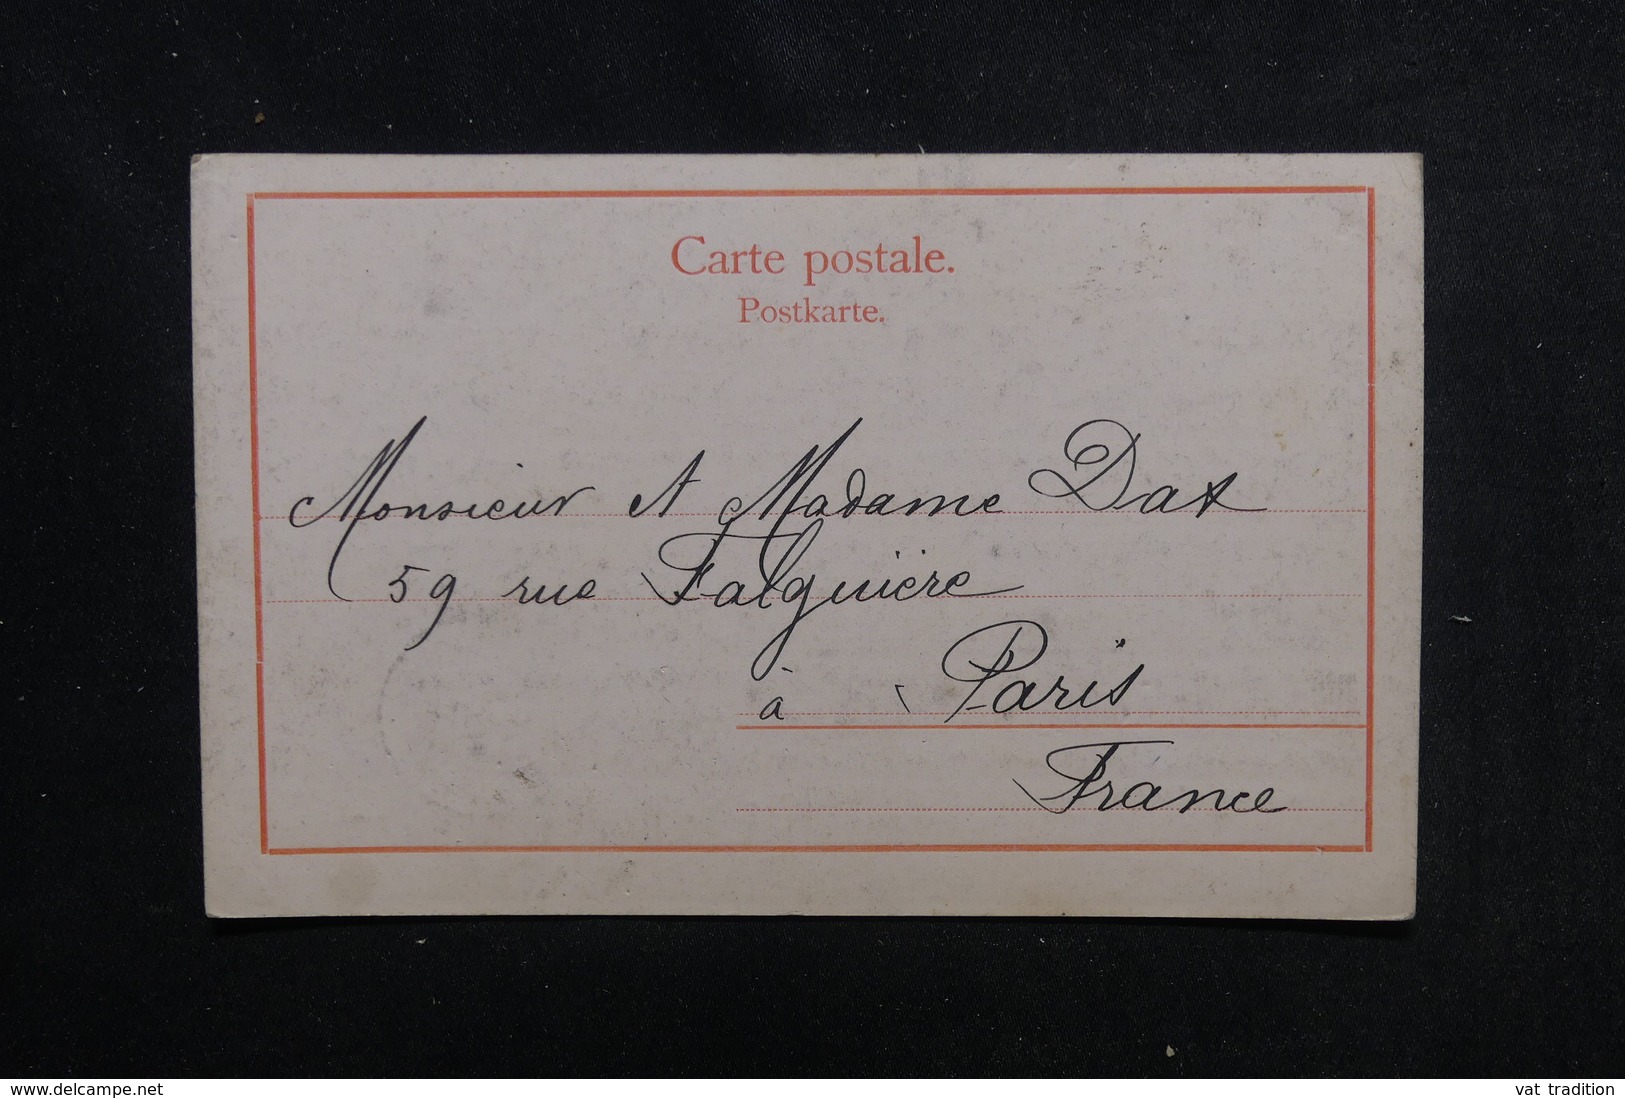 Carte postale.
Postkarte.
Monsieur et Madame Dax
59 rue Falguière
à Paris
France
www.delcampe.net
vat tradition